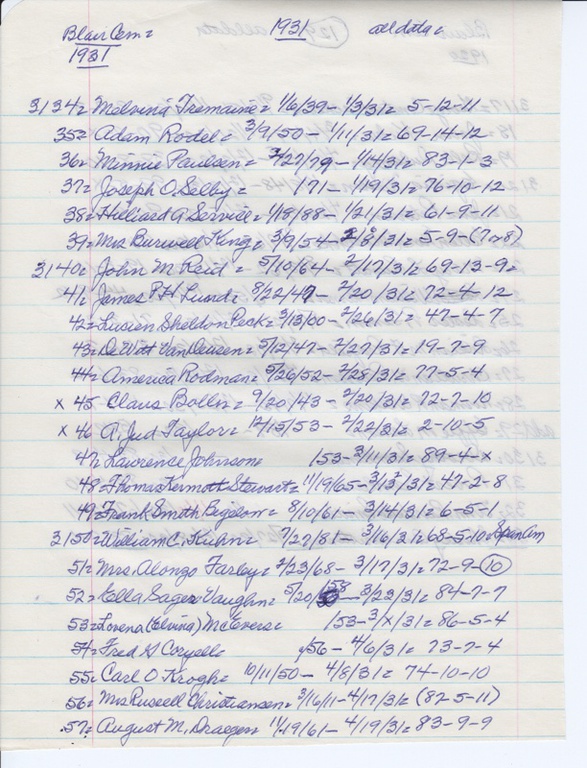 Blair Cem= 1931 all data=
1931
3134= Melvina Tremaine= 1/6/39 - 1/3/31= 5-12-11
35= Adam Rodel= 3/9/50 - 1/11/31= 69-14-12
36= Minnie Paulsen= 2/27/79 - 1/14/31= 83-1-3
37= Joseph O. Selby= 171 - 1/19/31= 76-10-12
38= Hilliard A. Service= 1/18/88 - 1/21/31= 61-9-11
39= Mrs Burwell King= 3/9/54 - 2/8/31= 5-9-(7 or 8)
3140= John M Reid= 5/10/64 - 2/17/31= 69-13-9=
41= James P.H Lund= 8/22/49 - 2/20/31= 72-4-12
42= Lucien Sheldon Peck= 3/13/60 - 2/26/31= 47-4-7
43= DeWitt VanDeusen= 5/12/47 - 2/27/31= 19-7-9
44= America Rodman= 5/26/52 - 2/28/31= 77-5-4
x 45 Claus Bolln= 9/20/43 - 2/20/31= 72-7-10
x 46 A. Jud Taylor= 12/15/53 - 2/22/31= 2-10-5
47= Lawrence Johnson= 153 - 3/11/31= 89-4-x
48= Thomas Kermott Stewart= 11/19/65 - 3/13/31= 47-2-8
49= Frank Smith Bigelow= 8/10/61 - 3/14/31= 6-5-1
3150= William C. Kuhn= 7/27/81 - 3/16/31= 68-5-10= Span Am
51= Mrs. Alonzo Farley= 2/23/68 - 3/17/31= 72-9-10
52= Ella Sager Vaughn= 5/20/53 - 3/23/31= 84-7-7
53= Lovena (Elvina) McEvers= 153 - 3/x/31= 86-5-4
54= Fred G Coryell= 56 - 4/6/31= 73-7-4
55= Carl O Krogh= 10/11/50 - 4/8/31= 74-10-10
56= Mrs Russell Christiansen= 3/16/11 - 4/17/31= (82-5-11)
57= August M. Draeger= 11/19/61 - 4/19/31= 83-9-9